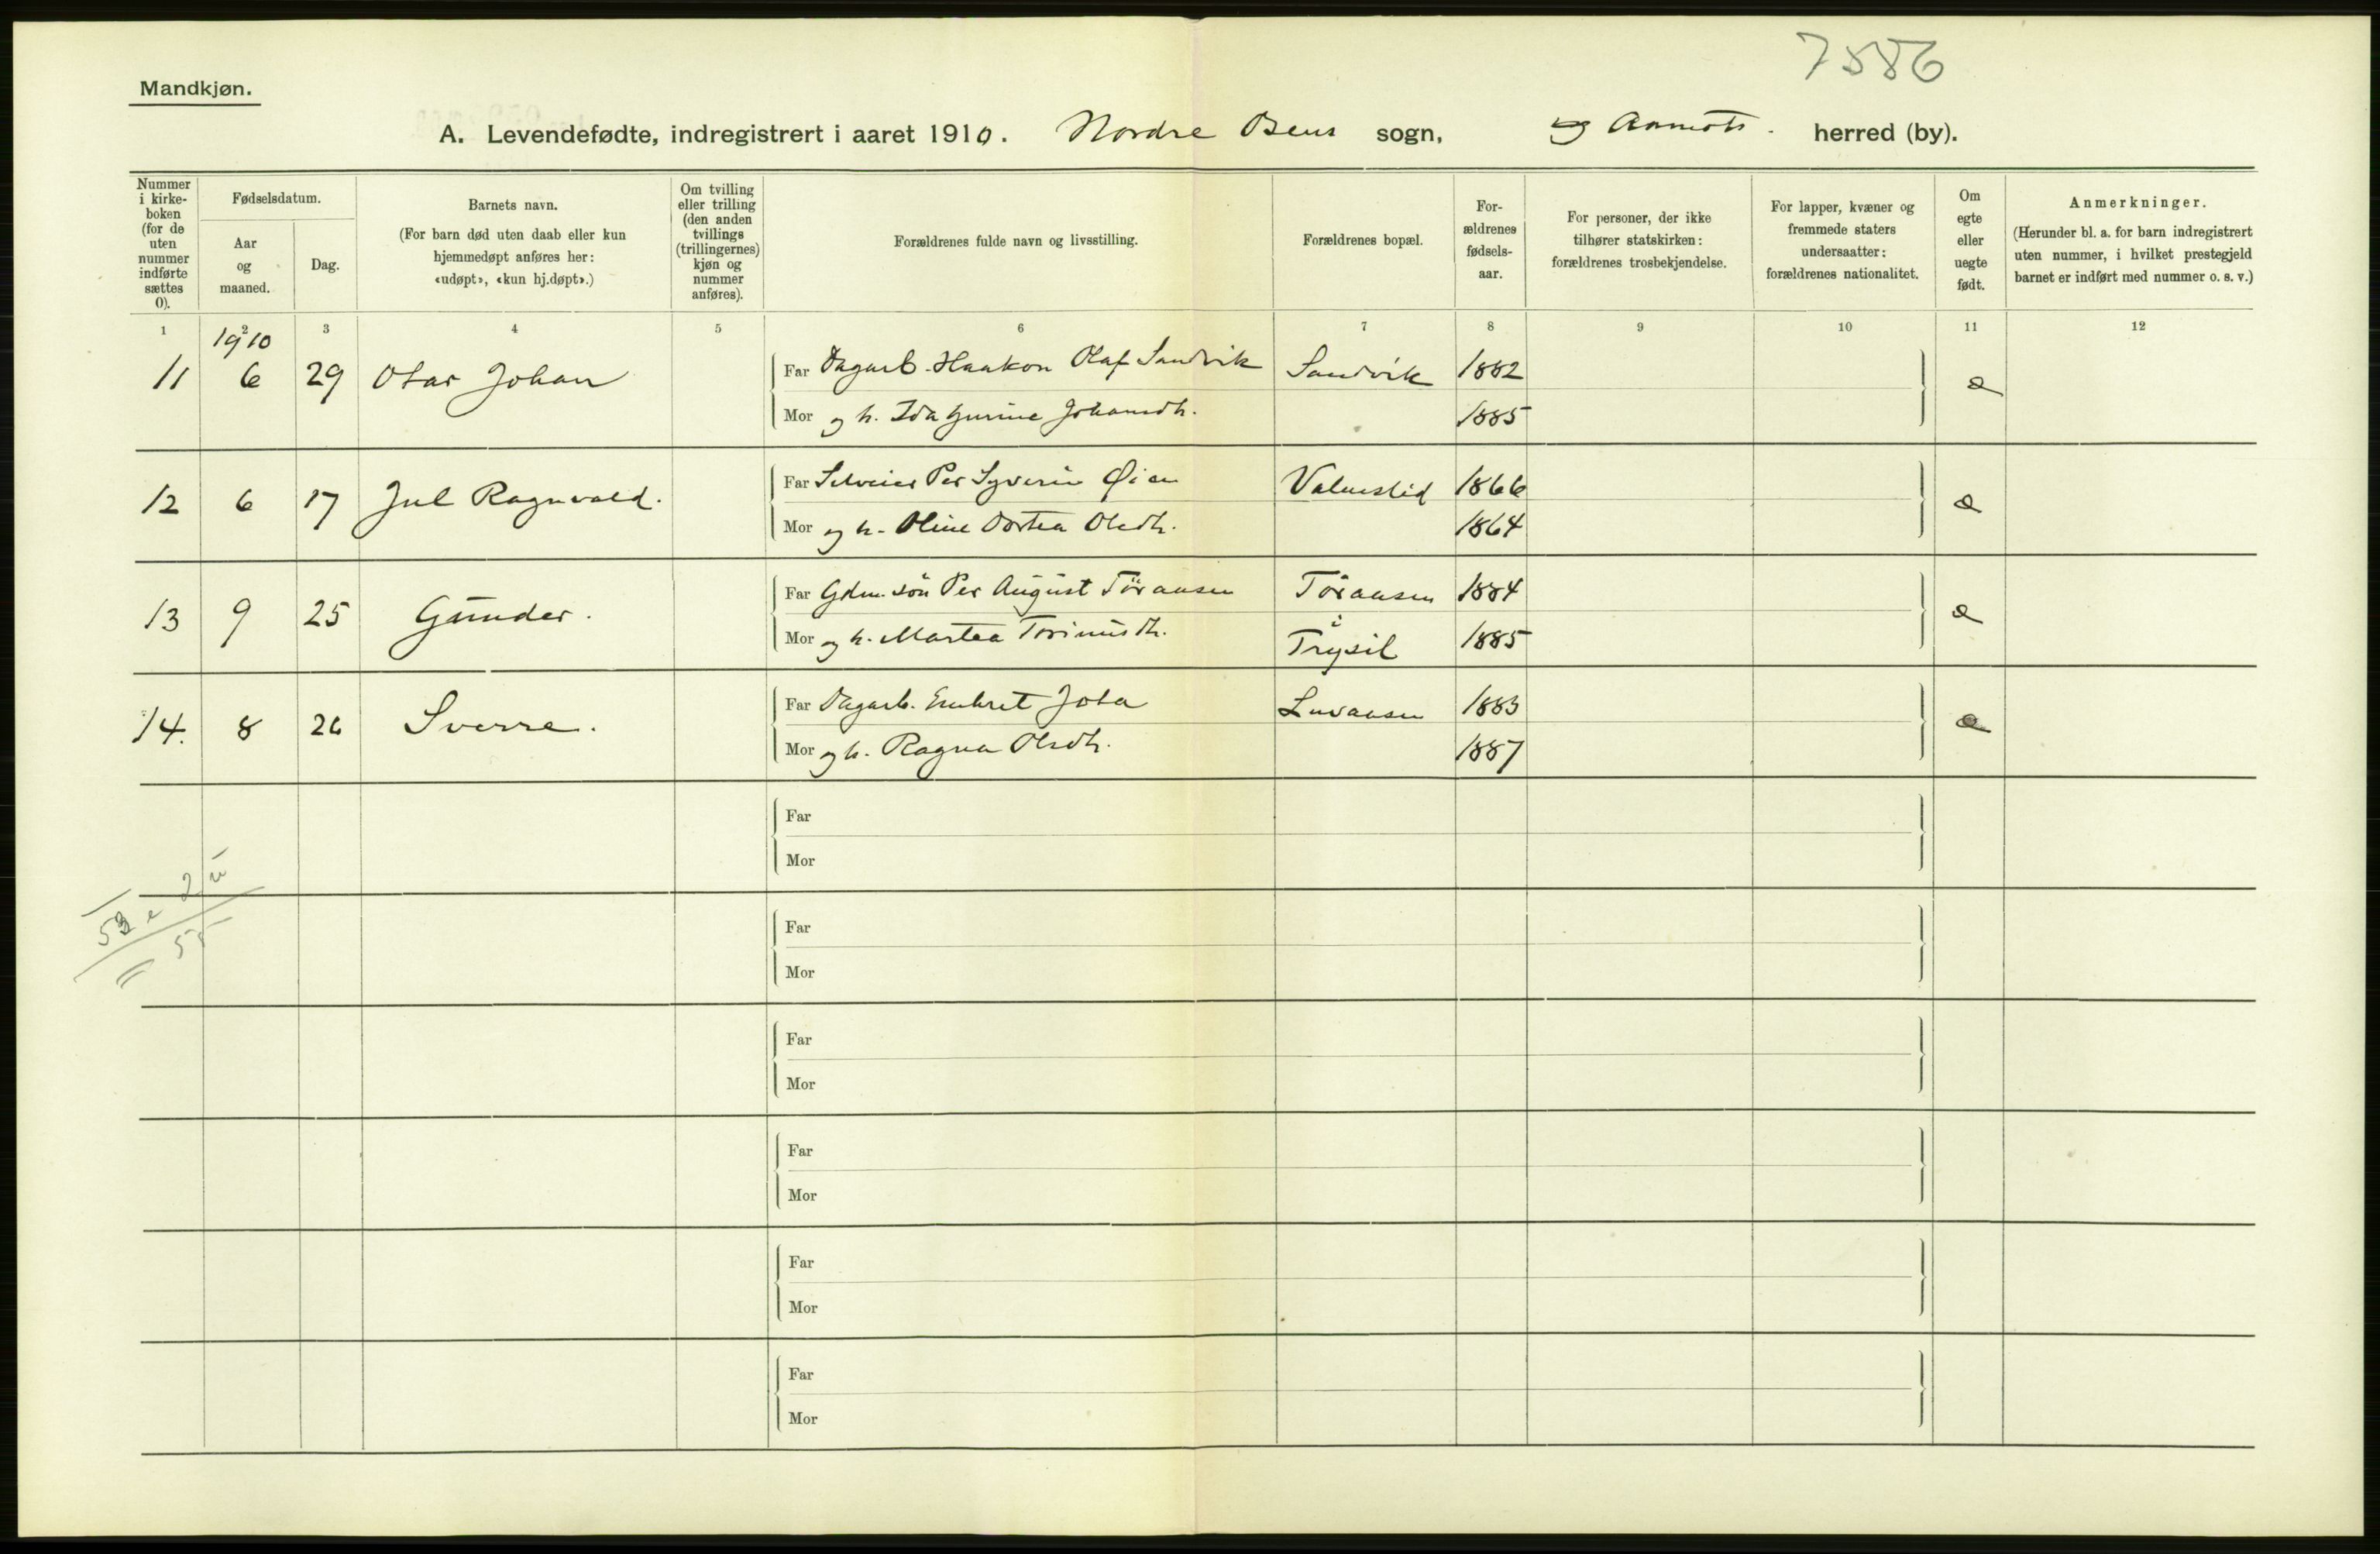 7886
Mandkjøn.
A. Levendefødte, indregistrert i aaret 1910. Nordre Osens sogn, Aamots. herred (by).
Nummer i kirke-boken (for de uten nummer indførte sættes 0).
Fødselsdatum.
Aar og maaned.
Dag.
Barnets navn.
(For barn død uten daab eller kun hjemmedøpt anføres her: «udøpt», «kun hj.døpt».)
Om tvilling eller trilling (den anden tvillings (trillingernes) kjøn og nummer anføres).
Forældrenes fulde navn og livsstilling.
Forældrenes bopæl.
For-ældrenes fødsels-aar.
For personer, der ikke tilhører statskirken: forældrenes trosbekjendelse.
For lapper, kvæner og fremmede staters undersaatter: forældrenes nationalitet.
Om egte eller uegte født.
Anmerkninger.
(Herunder bl. a. for barn indregistrert uten nummer, i hvilket prestegjeld barnet er indført med nummer o. s. v.)
1 2 3 4 5 6 7 8 9 10 11 12
1910
11 6 29 Otar Johan Far Dagarb. Haakon Olaf Sandvik Sandvik 1882
Mor og h. Ida Gurine Johansdtr. 1885
12 6 17 Jul Ragnvald. Far Selveier Per Syverin Øien 1866
Mor og h. Oline Dortea Olsdtr. 1864
13 9 25 Gunder. Far Gdm. søn Per August Töraasen Töraasen 1884
i
Mor og h. Martea Trysil 1885
14. 8 26 Sverre. Far Dagarb. Embret Jota 1883
Mor og h. Ragna Olsdtr. 1887
Far
Mor
53 e 2 u
55
Far
Mor
Far
Mor
Far
Mor
Far
Mor
Far
Mor